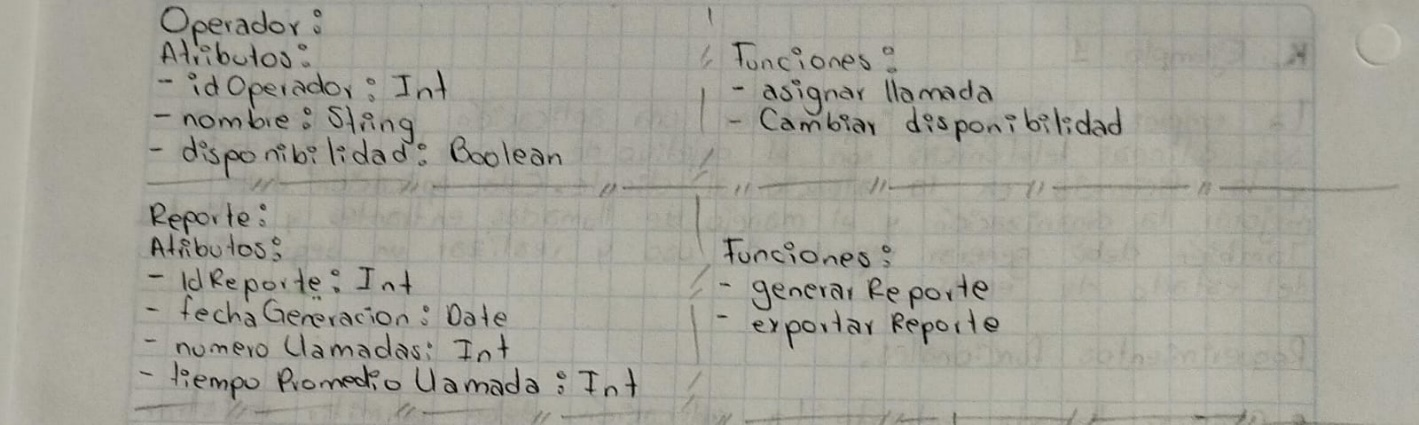 Operador:
Atributos:
- idOperador: Int
- nombre: String
- disponibilidad: Boolean
Funciones:
- asignar llamada
- Cambiar disponibilidad
Reporte:
Atributos:
- IdReporte: Int
- fechaGeneracion: Date
- numero llamadas: Int
- tiempo Promedio llamada: Int
Funciones:
- generar Reporte
- exportar Reporte